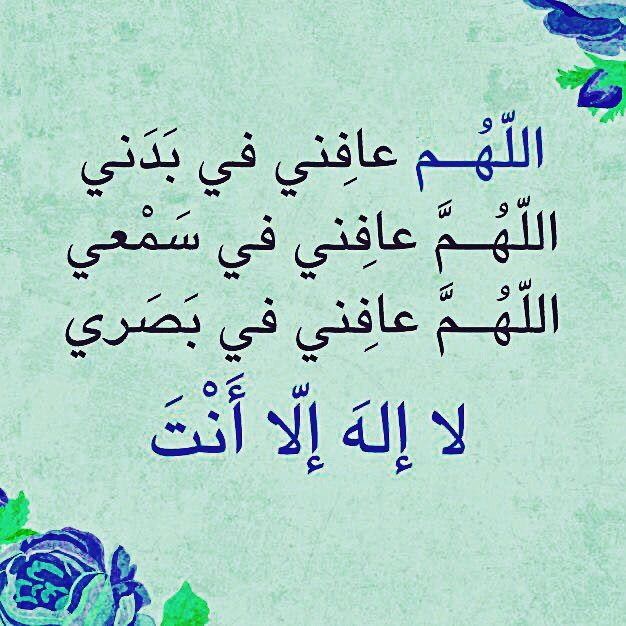 اللّهُـــم عافِني في بَدَني
اللّهُـــمَّ عافِني في سَمْعي
اللّهُـــمَّ عافِني في بَصَري
لا إلهَ إلّا أَنْتَ